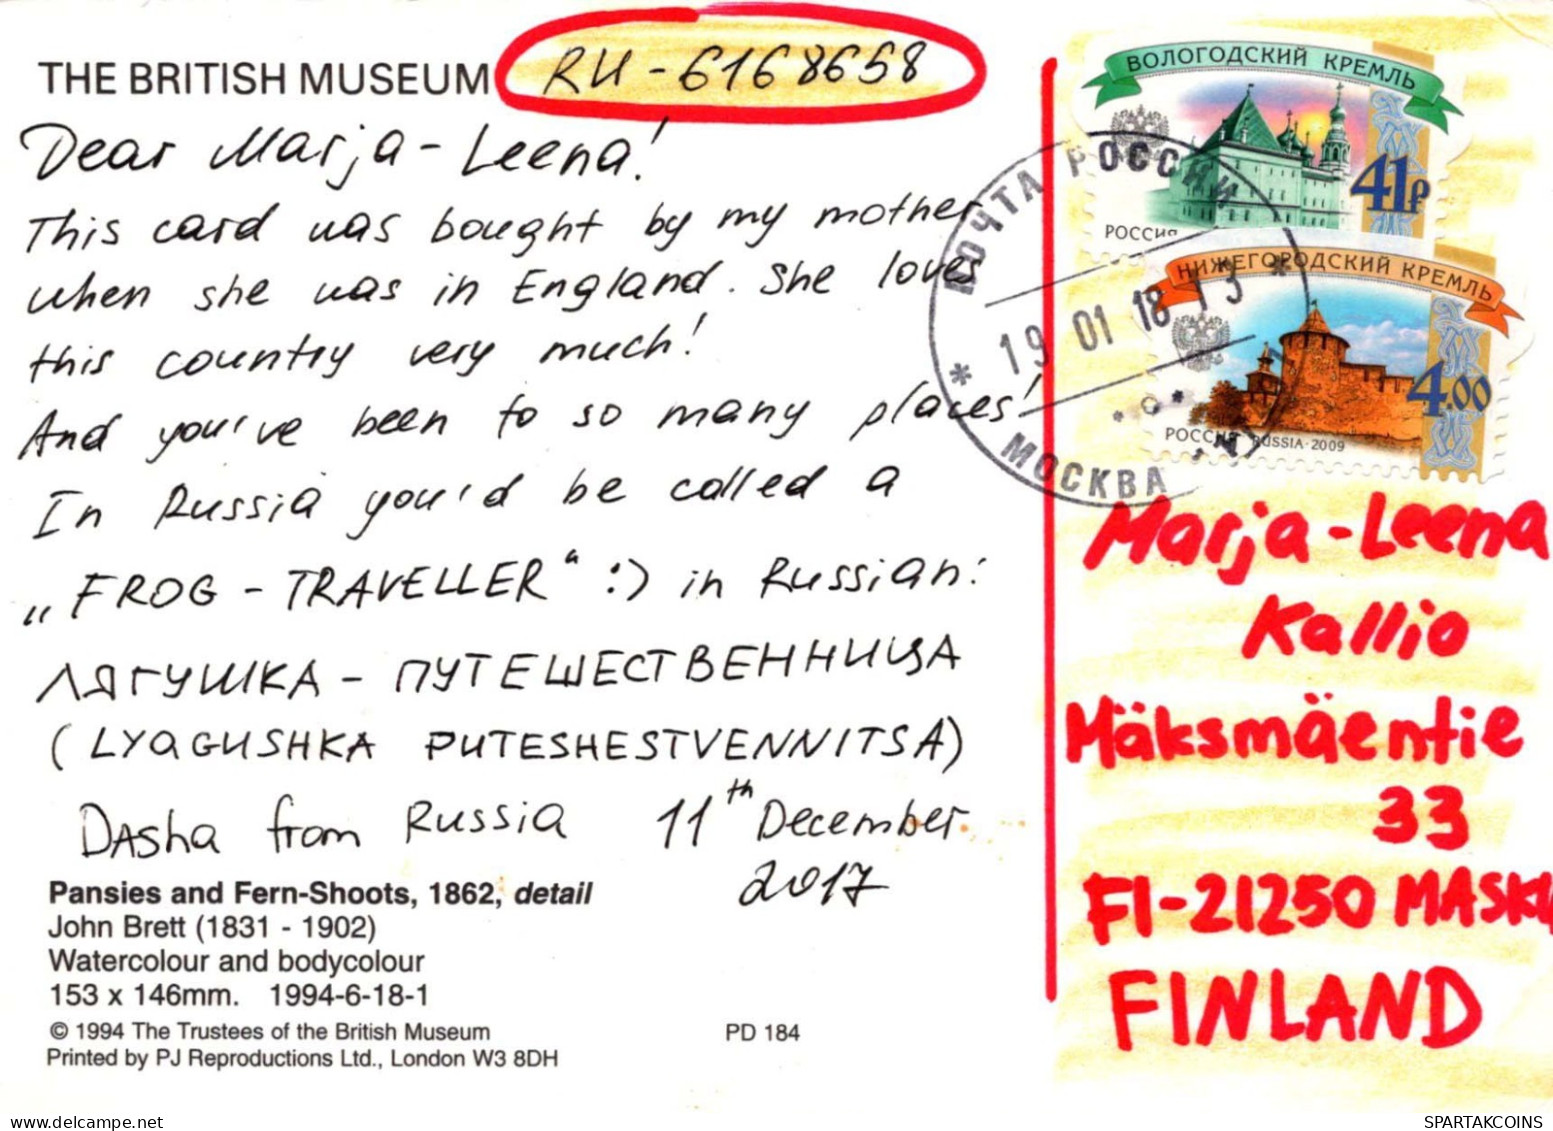 THE BRITISH MUSEUM
RU-6168658
Dear Marja-Leena!
This card was bought by my mother
when she was in England. She loves
this country very much!
And you've been to so many places!
In Russia you'd be called a
„FROG-TRAVELLER“ :) in Russian:
ЛЯГУШКА - ПУТЕШЕСТВЕННИЦА
(LYAGUSHKA PUTESHESTVENNITSA)
Dasha from Russia 11th December
2017
Pansies and Fern-Shoots, 1862, detail
John Brett (1831 - 1902)
Watercolour and bodycolour
153 x 146mm. 1994-6-18-1
© 1994 The Trustees of the British Museum
PD 184
Printed by PJ Reproductions Ltd., London W3 8DH
ВОЛОГОДСКИЙ КРЕМЛЬ
41р
РОССИЯ
НИЖЕГОРОДСКИЙ КРЕМЛЬ
4.00
РОССИЯ RUSSIA·2009
ПОЧТА РОССИИ
19 01 18 13
МОСКВА
Marja-Leena
Kallio
Mäksmäentie
33
FI-21250 MASKU
FINLAND
akpool.de
SPARTAKCOINS